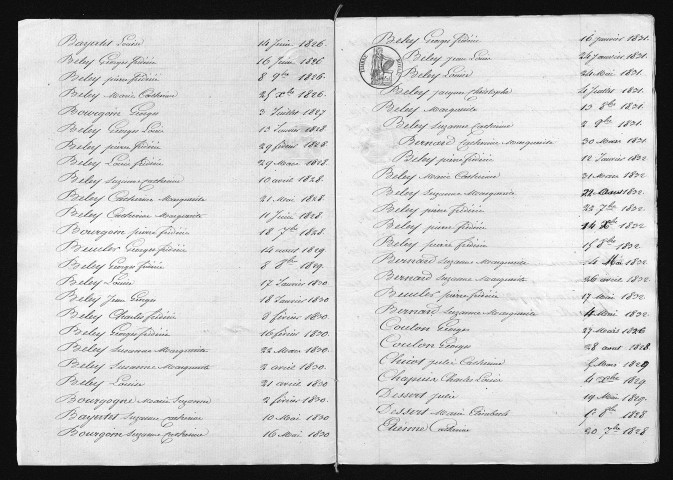 Bayertet Louise 14 Juin 1826.
Beley Georges frédéric 16 Juin 1826
Beley pierre frédéric 8 9bre 1826.
Beley Marie Catherine 25 Xbre 1826.
Bourgoin Georges 3 Juillet 1827
Beley Georges Louis 13 Janvier 1828
Beley pierre frédéric 29 février 1828
Beley Louis frédéric 29 Mars 1828.
Beley Suzanne catherine 10 avril 1828.
Beley Catherine Marguerite 21 Mai 1828
Beley Catherine Marguerite 11 Juin 1828.
Bourgoin pierre frédéric 18 7bre 1828.
Beucler Georges frédéric 14 aout 1829
Beley Georges frédéric 8 8bre 1829.
Beley Louis 17 Janvier 1830
Beley Jean Georges 18 Janvier 1830
Beley Charles frédéric 8 février 1830
Beley Georges frédéric 16 février 1830.
Beley Suzanne Marguerite 22 Mars 1830.
Beley Suzanne Marguerite 2 avril 1830.
Beley Louise 21 avril 1830
Bourgogne Marie Suzanne 2 février 1830.
Bayertet Suzanne catherine 10 Mai 1830
Bourgoin Suzanne Catherine 16 Mai 1830
Beley Georges frédéric 16 janvier 1831.
Beley Jean Louis 24 Janvier 1831.
Beley Louise 24 Mai 1831.
Beley Jacques christophe 4 Juillet 1831.
Beley Marguerite 13 8bre 1831.
Beley Suzanne Catherine 2 9bre 1831.
Bernard Catherine Marguerite 30 Mars 1831
Beley pierre frédéric 12 Janvier 1832
Beley Marie Catherine 31 Mars 1832
Beley Suzanne Marguerite 22 1832.
Beley pierre frédéric 22 7bre 1832
Beley pierre frédéric 24 Xbre 1832
Beley pierre frédéric 15 8bre 1832
Bernard Suzanne Marguerite 14 Mai 1832
Bernard Suzanne Marguerite 26 avril 1832
Beucler pierre frédéric 17 Mai 1832
Bernard Suzanne Marguerite 14 Mai 1832
Coulon Georges 27 Mars 1826
Coulon Georges 28 aout 1828.
Julie Catherine Mars 1829
Chapuis Charles Louis 4 Xbre 1829
Dessert Julie 19 Mai 1829.
Dessert Marie 8bre 1828
Etienne Catherine 20 7bre 1828